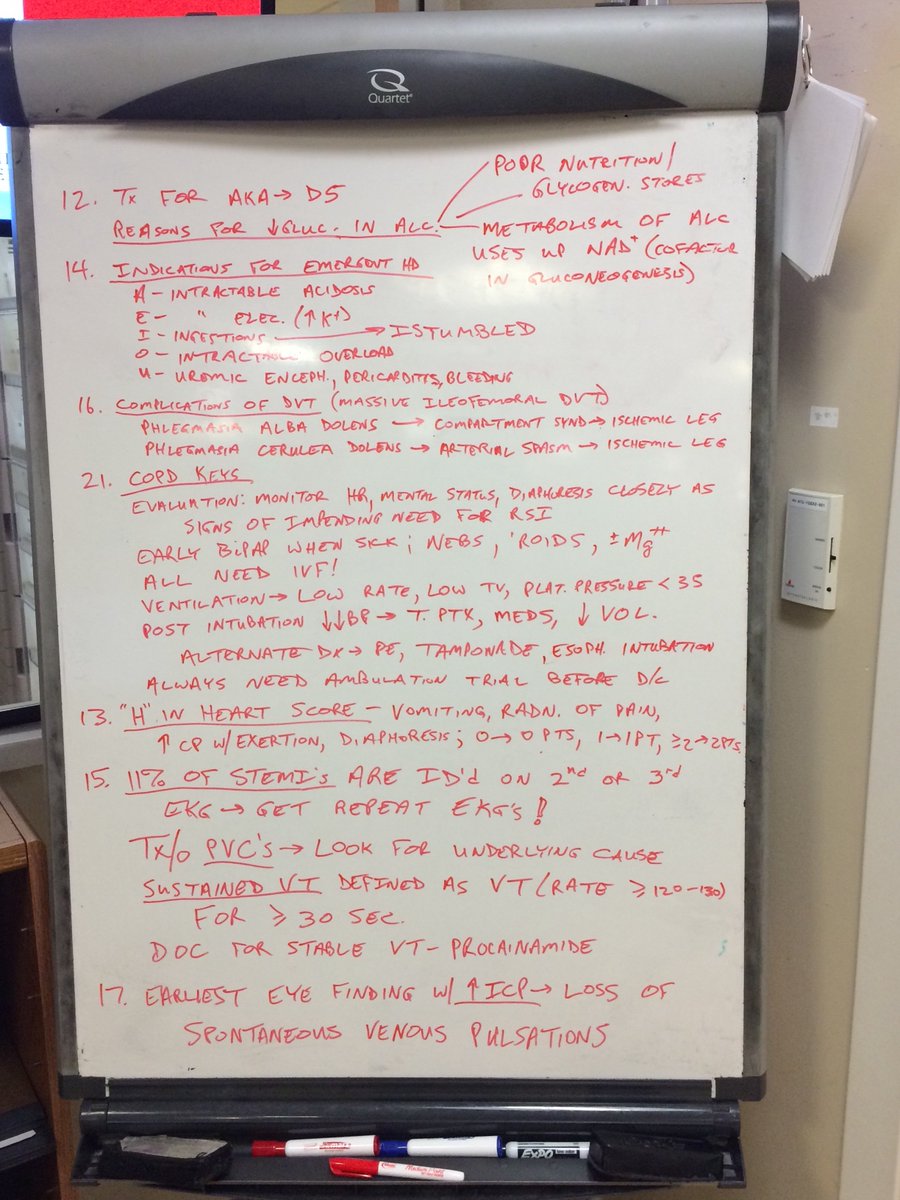 Quartet
POOR NUTRITION/
GLYCOGEN. STORES
12. Tx FOR AKA → D5
REASONS FOR ↓GLUC. IN ALC.
METABOLISM OF ALC
USES UP NAD⁺ (COFACTOR
IN GLUCONEOGENESIS)
14. INDICATIONS FOR EMERGENT HD
A - INTRACTABLE ACIDOSIS
E - " ELEC. (↑K+)
I - INGESTIONS → ISTUMBLED
O - INTRACTABLE OVERLOAD
U - UREMIC ENCEPH., PERICARDITIS, BLEEDING
16. COMPLICATIONS OF DVT (MASSIVE ILEOFEMORAL DVT)
PHLEGMASIA ALBA DOLENS → COMPARTMENT SYND → ISCHEMIC LEG
PHLEGMASIA CERULEA DOLENS → ARTERIAL SPASM → ISCHEMIC LEG
21. COPD KEYS
EVALUATION: MONITOR HR, MENTAL STATUS, DIAPHORESIS CLOSELY AS
SIGNS OF IMPENDING NEED FOR RSI
EARLY BiPAP WHEN SICK; NEBS, 'ROIDS, ±Mg⁺⁺
ALL NEED IVF!
VENTILATION → LOW RATE, LOW TV, PLAT. PRESSURE < 35
POST INTUBATION ↓↓BP → T. PTX, MEDS, ↓ VOL.
ALTERNATE DX → PE, TAMPONADE, ESOPH. INTUBATION
ALWAYS NEED AMBULATION TRIAL BEFORE D/C
13. "H" IN HEART SCORE - VOMITING, RADN. OF PAIN,
↑ CP W/ EXERTION, DIAPHORESIS; 0 → 0 PTS, 1 → 1 PT, ≥2 → 2 PTS.
15. 11% OF STEMI's ARE ID'd ON 2nd OR 3rd
EKG → GET REPEAT EKG's!
Tx/o PVC's → LOOK FOR UNDERLYING CAUSE
SUSTAINED VT DEFINED AS VT (RATE ≥ 120-130)
FOR ≥ 30 SEC.
DOC FOR STABLE VT - PROCAINAMIDE
17. EARLIEST EYE FINDING W/ ↑ICP → LOSS OF
SPONTANEOUS VENOUS PULSATIONS
EXPO